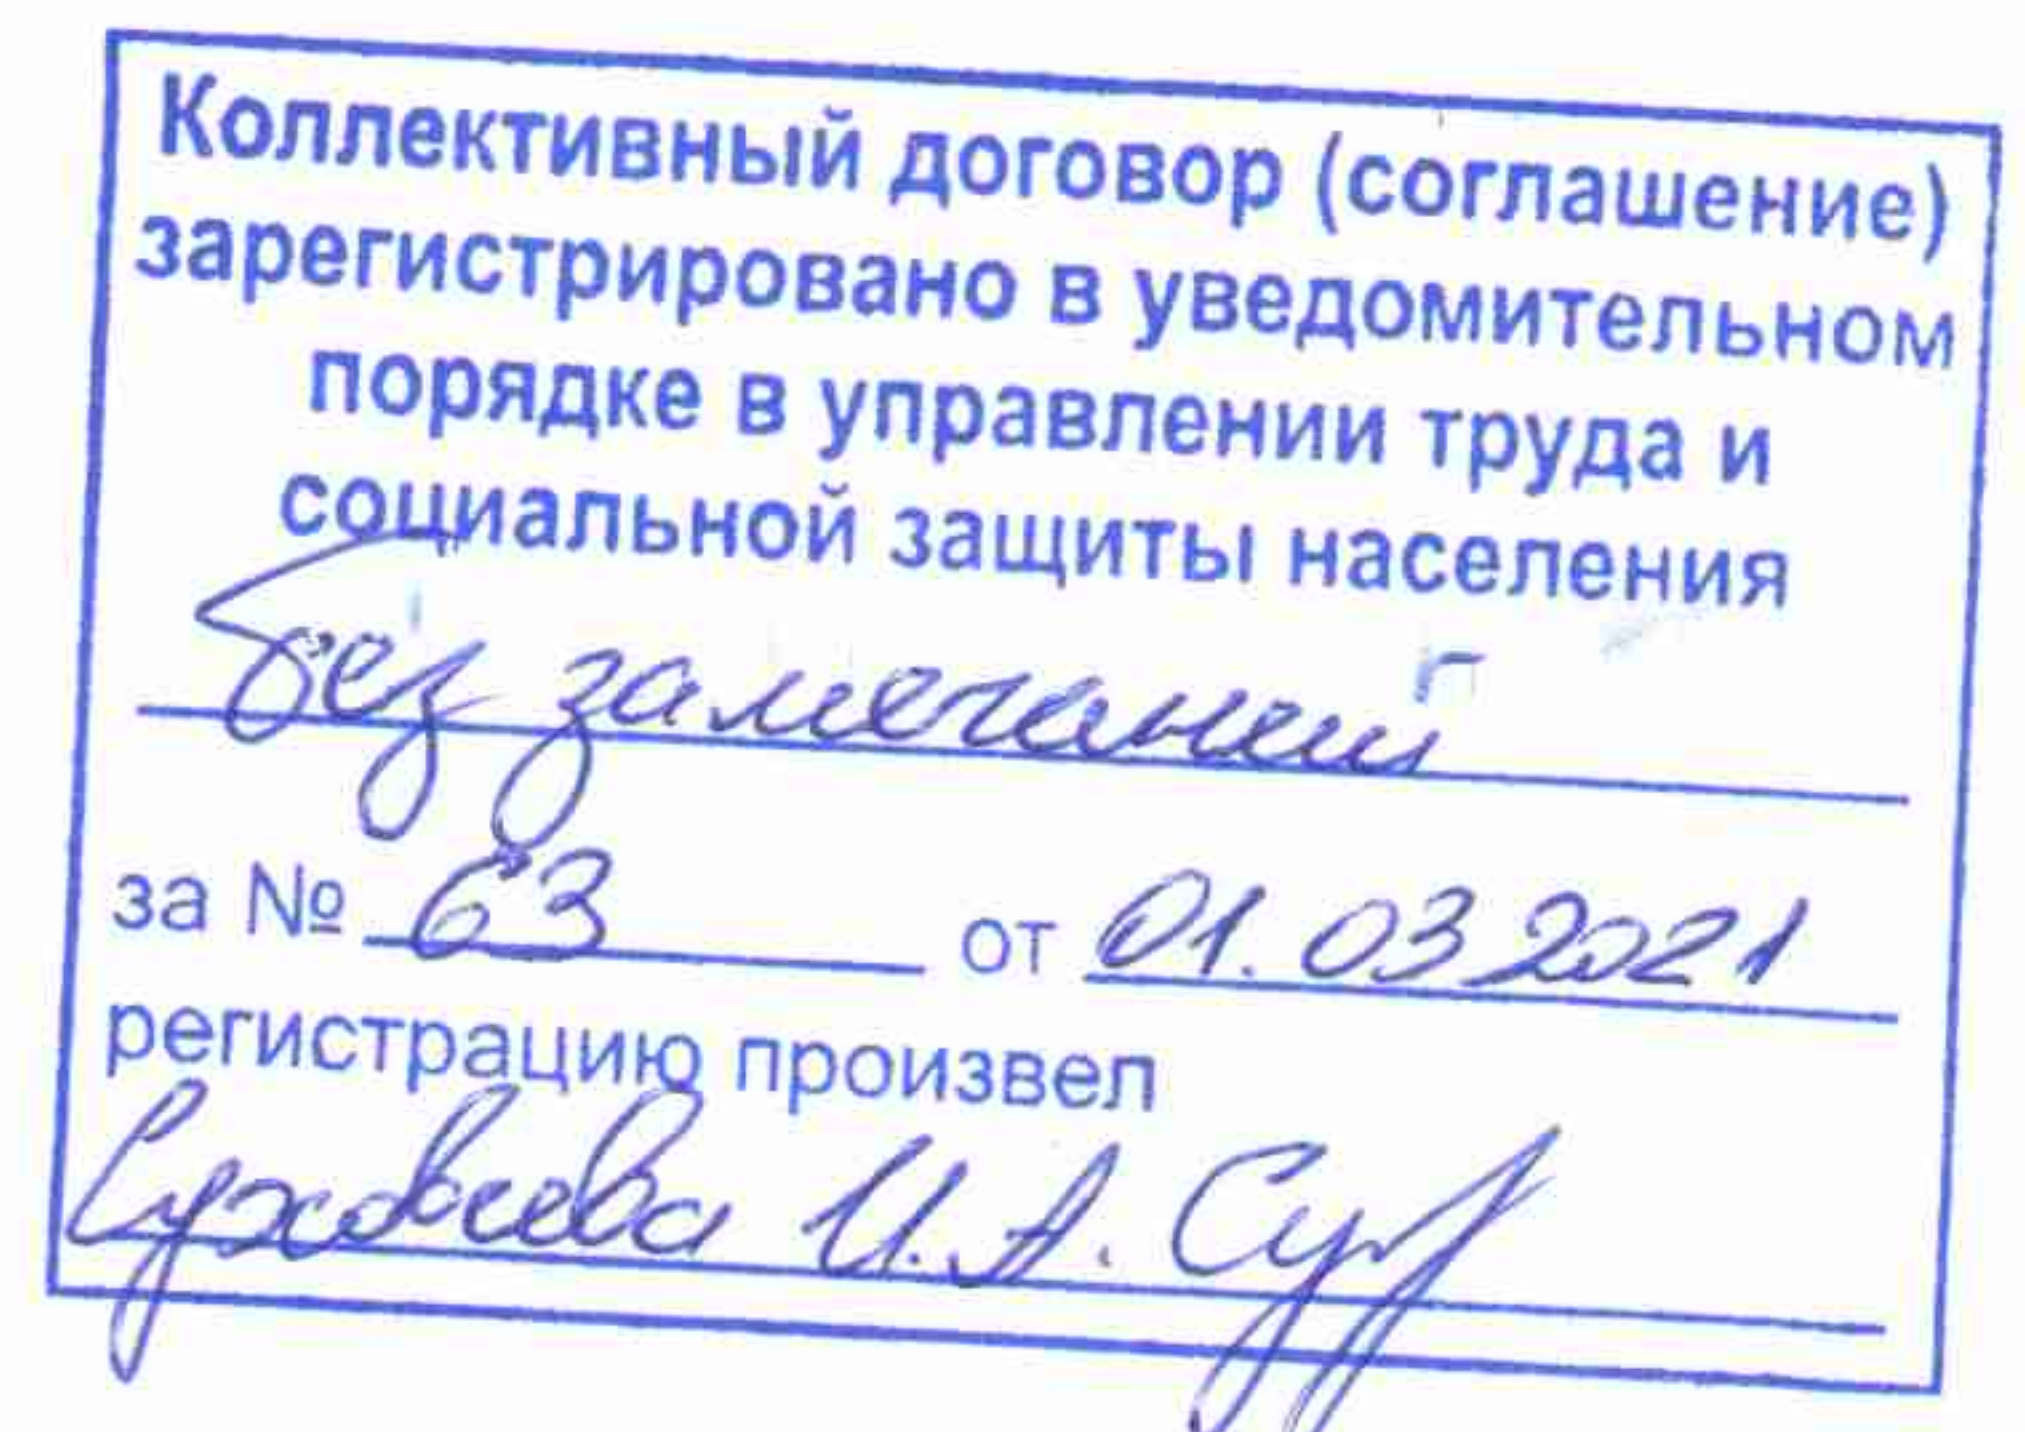 Коллективный договор (соглашение)
зарегистрировано в уведомительном
порядке в управлении труда и
социальной защиты населения
без замечаний
за № 63 от 01.03 2021
регистрацию произвел
И.А.